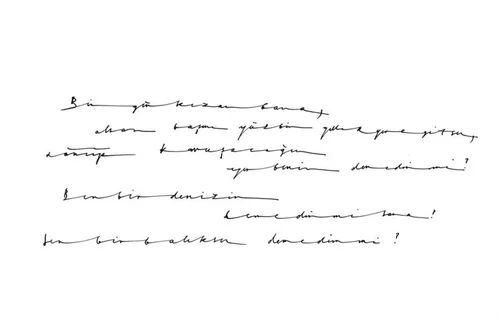 Bir gün kızsan bana,
alsan başını yüz bin yıllık yere gitsen,
dönüp kavuşacağın
yer benim demedim mi?
Ben bir denizim
demedim mi sana?
Sen bir balıksın demedim mi?